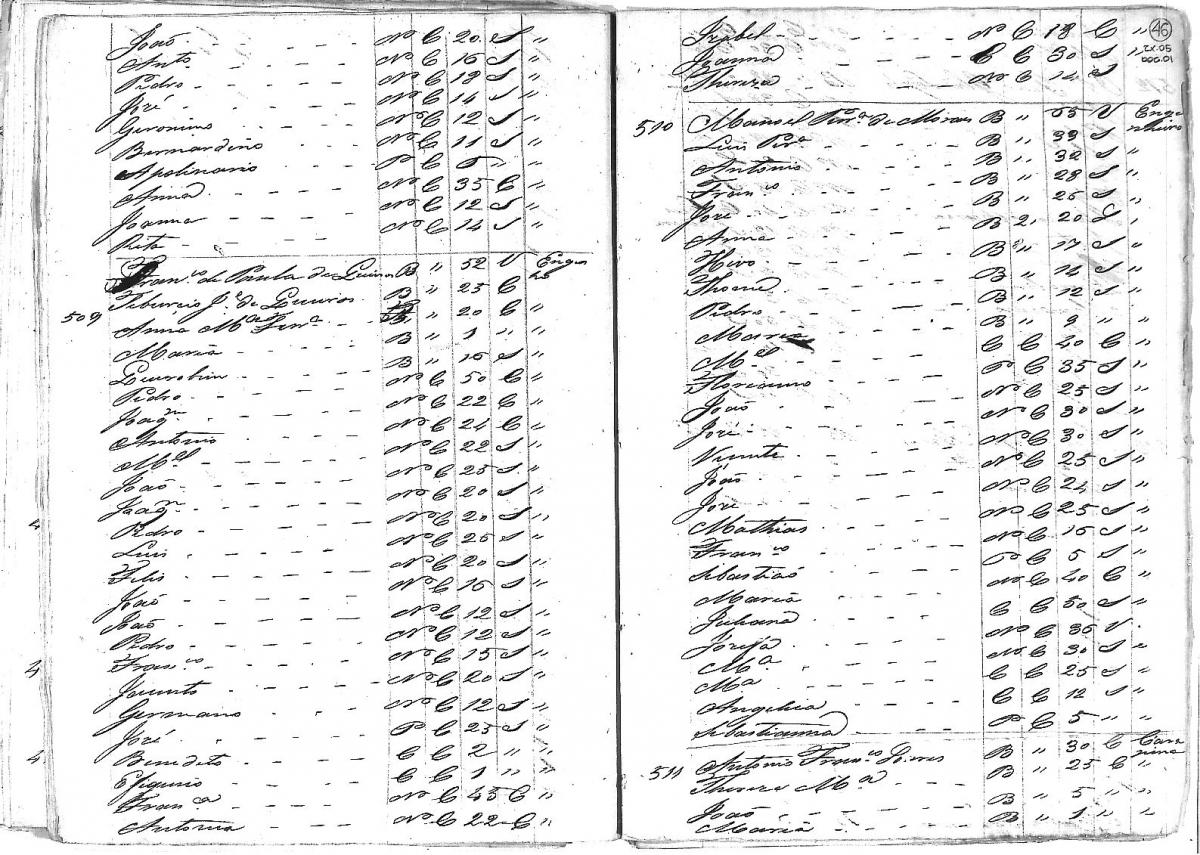 João - - - No C 20 S "
Anto - - - No C 16 S "
Pedro - - - No C 19 S "
José - - - No C 14 S "
Geronimo - - - No C 12 S "
Bernardino - - - No C 11 S "
Apolinario - - - Po C 6 " "
Anna - - - No C 35 C "
Joanna - - - No C 12 S "
Rita - - - No C 14 S "
Franco de Paula de B " 52 V Engenho
509 Tiburcio Je de B " 25 C "
Anna Ma B " 20 C "
Maria B " 1 " "
B " 16 S "
Pedro - - - No C 50 C "
Joaqm - - - No C 22 C "
Antonio - - - No C 24 C "
Mel - - - No C 22 S "
João - - - No C 25 S "
Joaqm - - - No C 20 S "
Pedro - - - No C 20 S "
Luis - - - No C 26 S "
Felis - - - No C 20 S "
João - - - No C 16 S "
João - - - No C 12 S "
Pedro - - - No C 12 S "
Franco - - - No C 15 S "
Jacinto - - - No C 20 S "
Germano - - - No C 12 S "
José - - - Po C 25 S "
Benedito - - - C C 2 " "
C C 1 " "
Franca - - - No C 45 C "
Antonia - - - No C 22 C "
4
4
4
46
2X.05
000.01
Izabel - - - No C 18 C "
Joanna - - - C C 30 S "
Thereza - - - No C 14 S
510 Manoel Pra de Moraes B " 65 V Engenheiro
Luis Pra B " 39 S "
Antonio - - - B " 32 S "
Franco - - - B " 28 S "
José - - - B " 25 S "
Anna - - - B 2, 20 S "
B " 17 S "
B " 14 S "
Pedro - - - B " 12 S "
Maria - - - B " 9 " "
Mel - - - C C 40 C "
Floriano - - - Po C 35 S "
João - - - No C 25 S "
José - - - No C 30 S "
Vicente - - - No C 30 S "
João - - - No C 25 S "
José - - - No C 24 S "
Mathias - - - No C 25 S "
Franco - - - No C 16 S "
Sebastião - - - Po C 5 S "
Maria - - - No C 40 C "
Juliana - - - C C 50 S "
Josefa - - - No C 36 V "
Ma - - - No C 30 S "
Ma - - - C C 25 S "
Angelica - - - C C 12 S "
Sebastianna - - - Po C 5 " "
511 Antonio Franco B " 30 C
Thereza Ma B " 25 C "
João - - - B " 5 " "
Maria - - - B " 1 " "